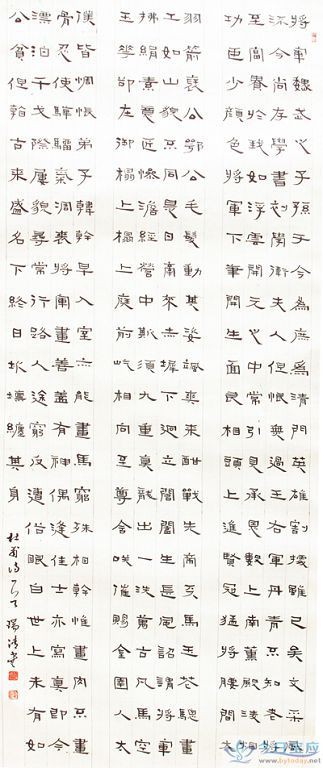 將軍魏武之子孫于今為庶為清門英雄割據雖已矣文采風
流今尚存學書初學衛夫人但恨無過王右軍丹青不知老將
至富貴於我如浮雲開元之中常引見承恩數上南薰殿凌煙
功臣少顏色將軍下筆開生面良相頭上進賢冠猛將腰間大
羽箭褒公鄂公毛髮動英姿颯爽來酣戰先帝天馬玉花驄畫
工如山貌不同是日牽來赤墀下迥立閶闔生長風詔謂將軍
拂絹素意匠慘澹經營中斯須九重真龍出一洗萬古凡馬空
玉花卻在御榻上榻上庭前屹相向至尊含笑催賜金圉人太
僕皆惆悵弟子韓幹早入室亦能畫馬窮殊相幹惟畫肉不畫
骨忍使驊騮氣凋喪將軍畫善蓋有神偶逢佳士亦寫真即今
漂泊干戈際屢貌尋常行路人途窮反遭俗眼白世上未有如
公貧但看古來盛名下終日坎壈纏其身
杜甫詩
瑞清書
今日寶應
www.bytoday.net